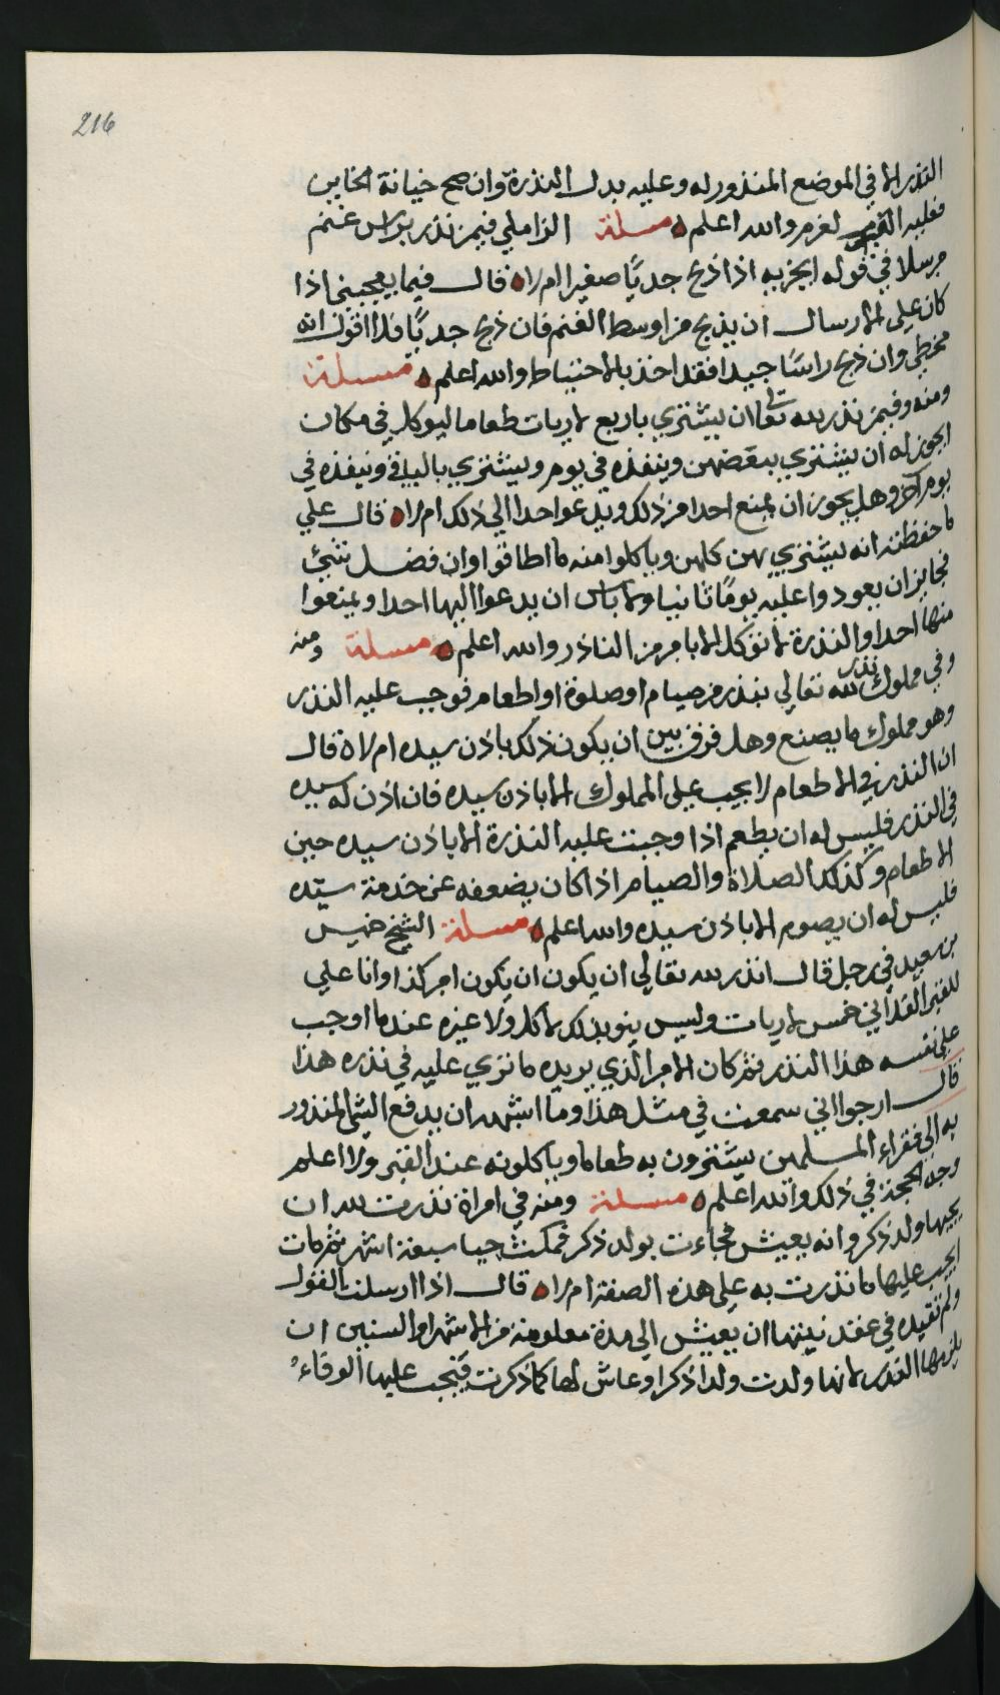 216
النذر الا في الموضع المنذور له وعليه بدل النذرة وان صح خيانة الخاين
فعليه الغرم والله اعلم مسئلة الزاملي فيمن نذر براس غنم
مرسلا في قوله ايجزيه اذا ذبح جديًا صغيرا ام لا قال فيما يعجبني اذا
كان على الارسال ان يذبح من اوسط الغنم فان ذبح جديًا فلا اقول انه
مخطي وان ذبح راسًا جيدا فقد اخذ بالاحتياط والله اعلم مسئلة
ومنه وفيمن نذر لله تعالى ان يشتري باربع لاريات طعاما ليوكل في مكان
ايجوز له ان يشتري ببعضهن وينفذه في يوم ويشتري بالباقي وينفذه في
يوم آخر وهل يجوز ان يمنع احدا من ذلك ويدعو احدا الى ذلك ام لا قال على
ما حفظته انه يشتري بهن كلهن وياكلوا منه ما اطاقوا وان فضل شيئ
فجايز ان يعودوا عليه يومًا ثانيا ولا باس ان يدعوا اليها احدا ويمنعوا
منها احدا والنذرة لا توكل الا بامر من الناذر والله اعلم مسئلة ومنه
وفي مملوك نذر لله تعالى بنذر من صيام او صلوة او اطعام فوجب عليه النذر
وهو مملوك ما يصنع وهل فرق بين ان يكون ذلك باذن سيده ام لا قال
ان النذر في الاطعام لا يجب على المملوك الا باذن سيده فان اذن له سيده
في النذر فليس له ان يطعم اذا وجبت عليه النذرة الا باذن سيده حين
الاطعام وكذلك الصلاة والصيام اذا كان يضعفه عن خدمة سيّده
فليس له ان يصوم الا باذن سيده والله اعلم مسئلة الشيخ خميس
بن سعيد في رجل قال انذر لله تعالى ان يكون ان يكون امر كذا وانا علي
للقبر الفلاني خمس لاريات وليس ينو بذلك لاكل ولا غيره عندما اوجب
على نفسه هذا النذر فتم كان الامر الذي يريده ما ترى عليه في نذره هذا
قال ارجوا اني سمعت في مثل هذا وما اشبهه ان يدفع الشي المنذور
به الى فقراء المسلمين يشترون به طعاما وياكلونه عند القبر ولا اعلم
وجه الحجة في ذلك والله اعلم مسئلة ومنه في امراة نذرت لله ان
يجيها ولد ذكر وانه يعيش فجاءت بولد ذكر فمكث حيا سبعة اشهر ثم مات
ايجب عليها ما نذرت به على هذه الصفة ام لا قال اذا ارسلت القول
ولم تقيده في عقد نيتها ان يعيش الى مدة معلومة من الاشهر او السنين ان
يلزمها النذر لانها ولدت ولدا ذكرا وعاش لها كما ذكرت فيجب عليها الوفاءُ